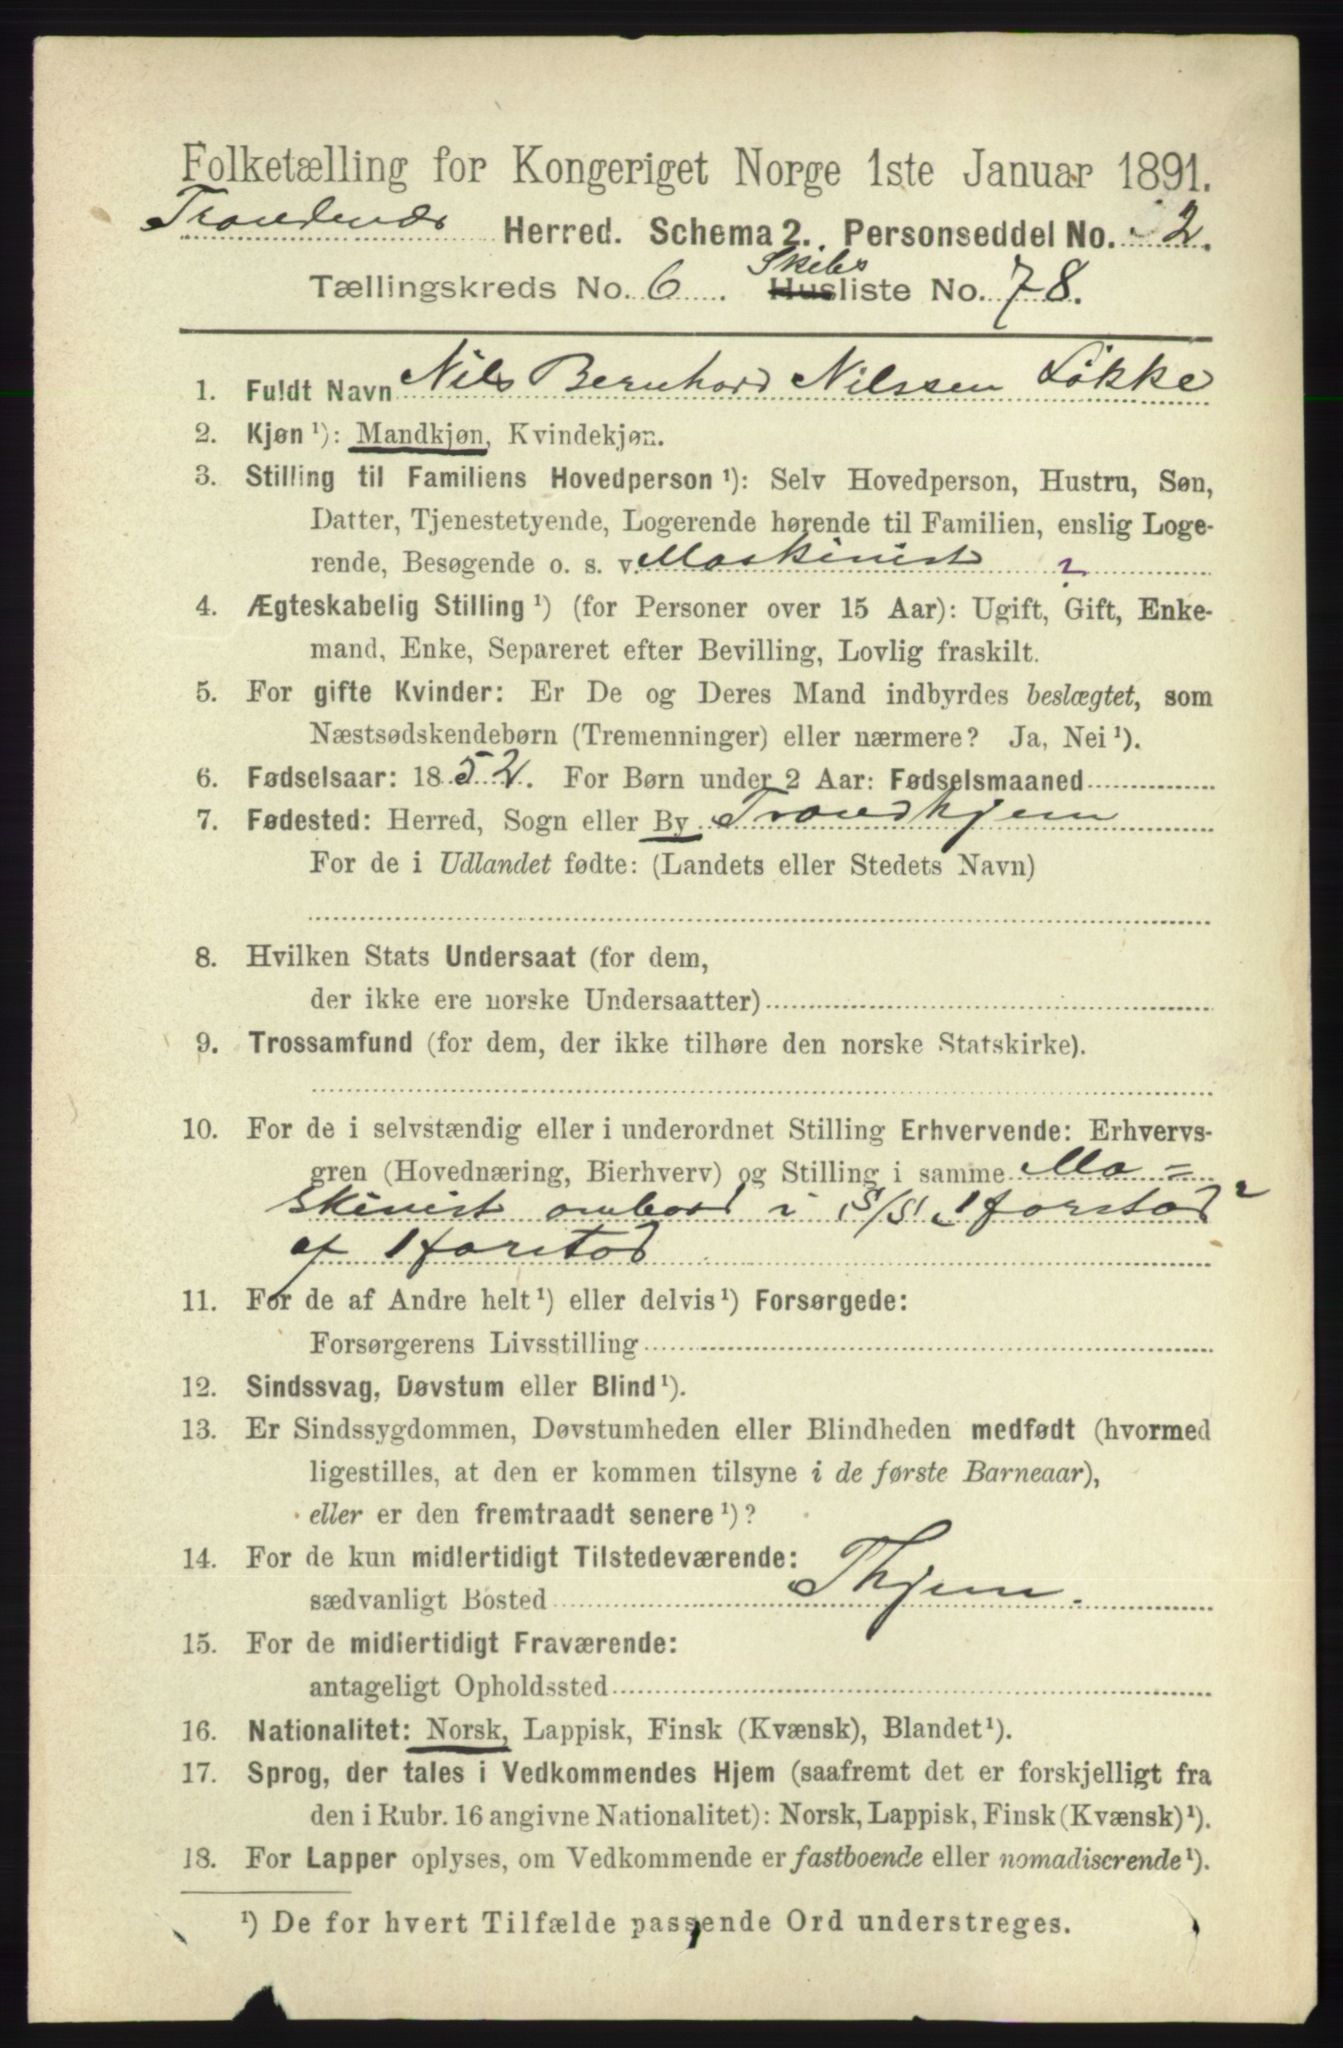 Folketælling for Kongeriget Norge 1ste Januar 1891.
Trondenæs Herred. Schema 2. Personseddel No. 2.
Tællingskreds No. 6 Skibs Husliste No. 78.
1. Fuldt Navn Nils Bernhard Nilssen Løkke
2. Kjøn ¹): Mandkjøn, Kvindekjøn.
3. Stilling til Familiens Hovedperson ¹): Selv Hovedperson, Hustru, Søn,
Datter, Tjenestetyende, Logerende hørende til Familien, enslig Loge-
rende, Besøgende o. s. v. Maskinist ?
4. Ægteskabelig Stilling ¹) (for Personer over 15 Aar): Ugift, Gift, Enke-
mand, Enke, Separeret efter Bevilling, Lovlig fraskilt.
5. For gifte Kvinder: Er De og Deres Mand indbyrdes beslægtet, som
Næstsødskendebørn (Tremenninger) eller nærmere? Ja, Nei ¹).
6. Fødselsaar: 1852. For Børn under 2 Aar: Fødselsmaaned
7. Fødested: Herred, Sogn eller By Trondhjem
For de i Udlandet fødte: (Landets eller Stedets Navn)
8. Hvilken Stats Undersaat (for dem,
der ikke ere norske Undersaatter)
9. Trossamfund (for dem, der ikke tilhøre den norske Statskirke).
10. For de i selvstændig eller i underordnet Stilling Erhvervende: Erhvervs-
gren (Hovednæring, Bierhverv) og Stilling i samme Ma=
skinist ombord i S/S
af
11. For de af Andre helt ¹) eller delvis ¹) Forsørgede:
Forsørgerens Livsstilling
12. Sindssvag, Døvstum eller Blind ¹).
13. Er Sindssygdommen, Døvstumheden eller Blindheden medfødt (hvormed
ligestilles, at den er kommen tilsyne i de første Barneaar),
eller er den fremtraadt senere ¹)?
14. For de kun midlertidigt Tilstedeværende:
sædvanligt Bosted Thjem.
15. For de midlertidigt Fraværende:
antageligt Opholdssted
16. Nationalitet: Norsk, Lappisk, Finsk (Kvænsk), Blandet ¹).
17. Sprog, der tales i Vedkommendes Hjem (saafremt det er forskjelligt fra
den i Rubr. 16 angivne Nationalitet): Norsk, Lappisk, Finsk (Kvænsk) ¹).
18. For Lapper oplyses, om Vedkommende er fastboende eller nomadiserende ¹).
¹) De for hvert Tilfælde passende Ord understreges.